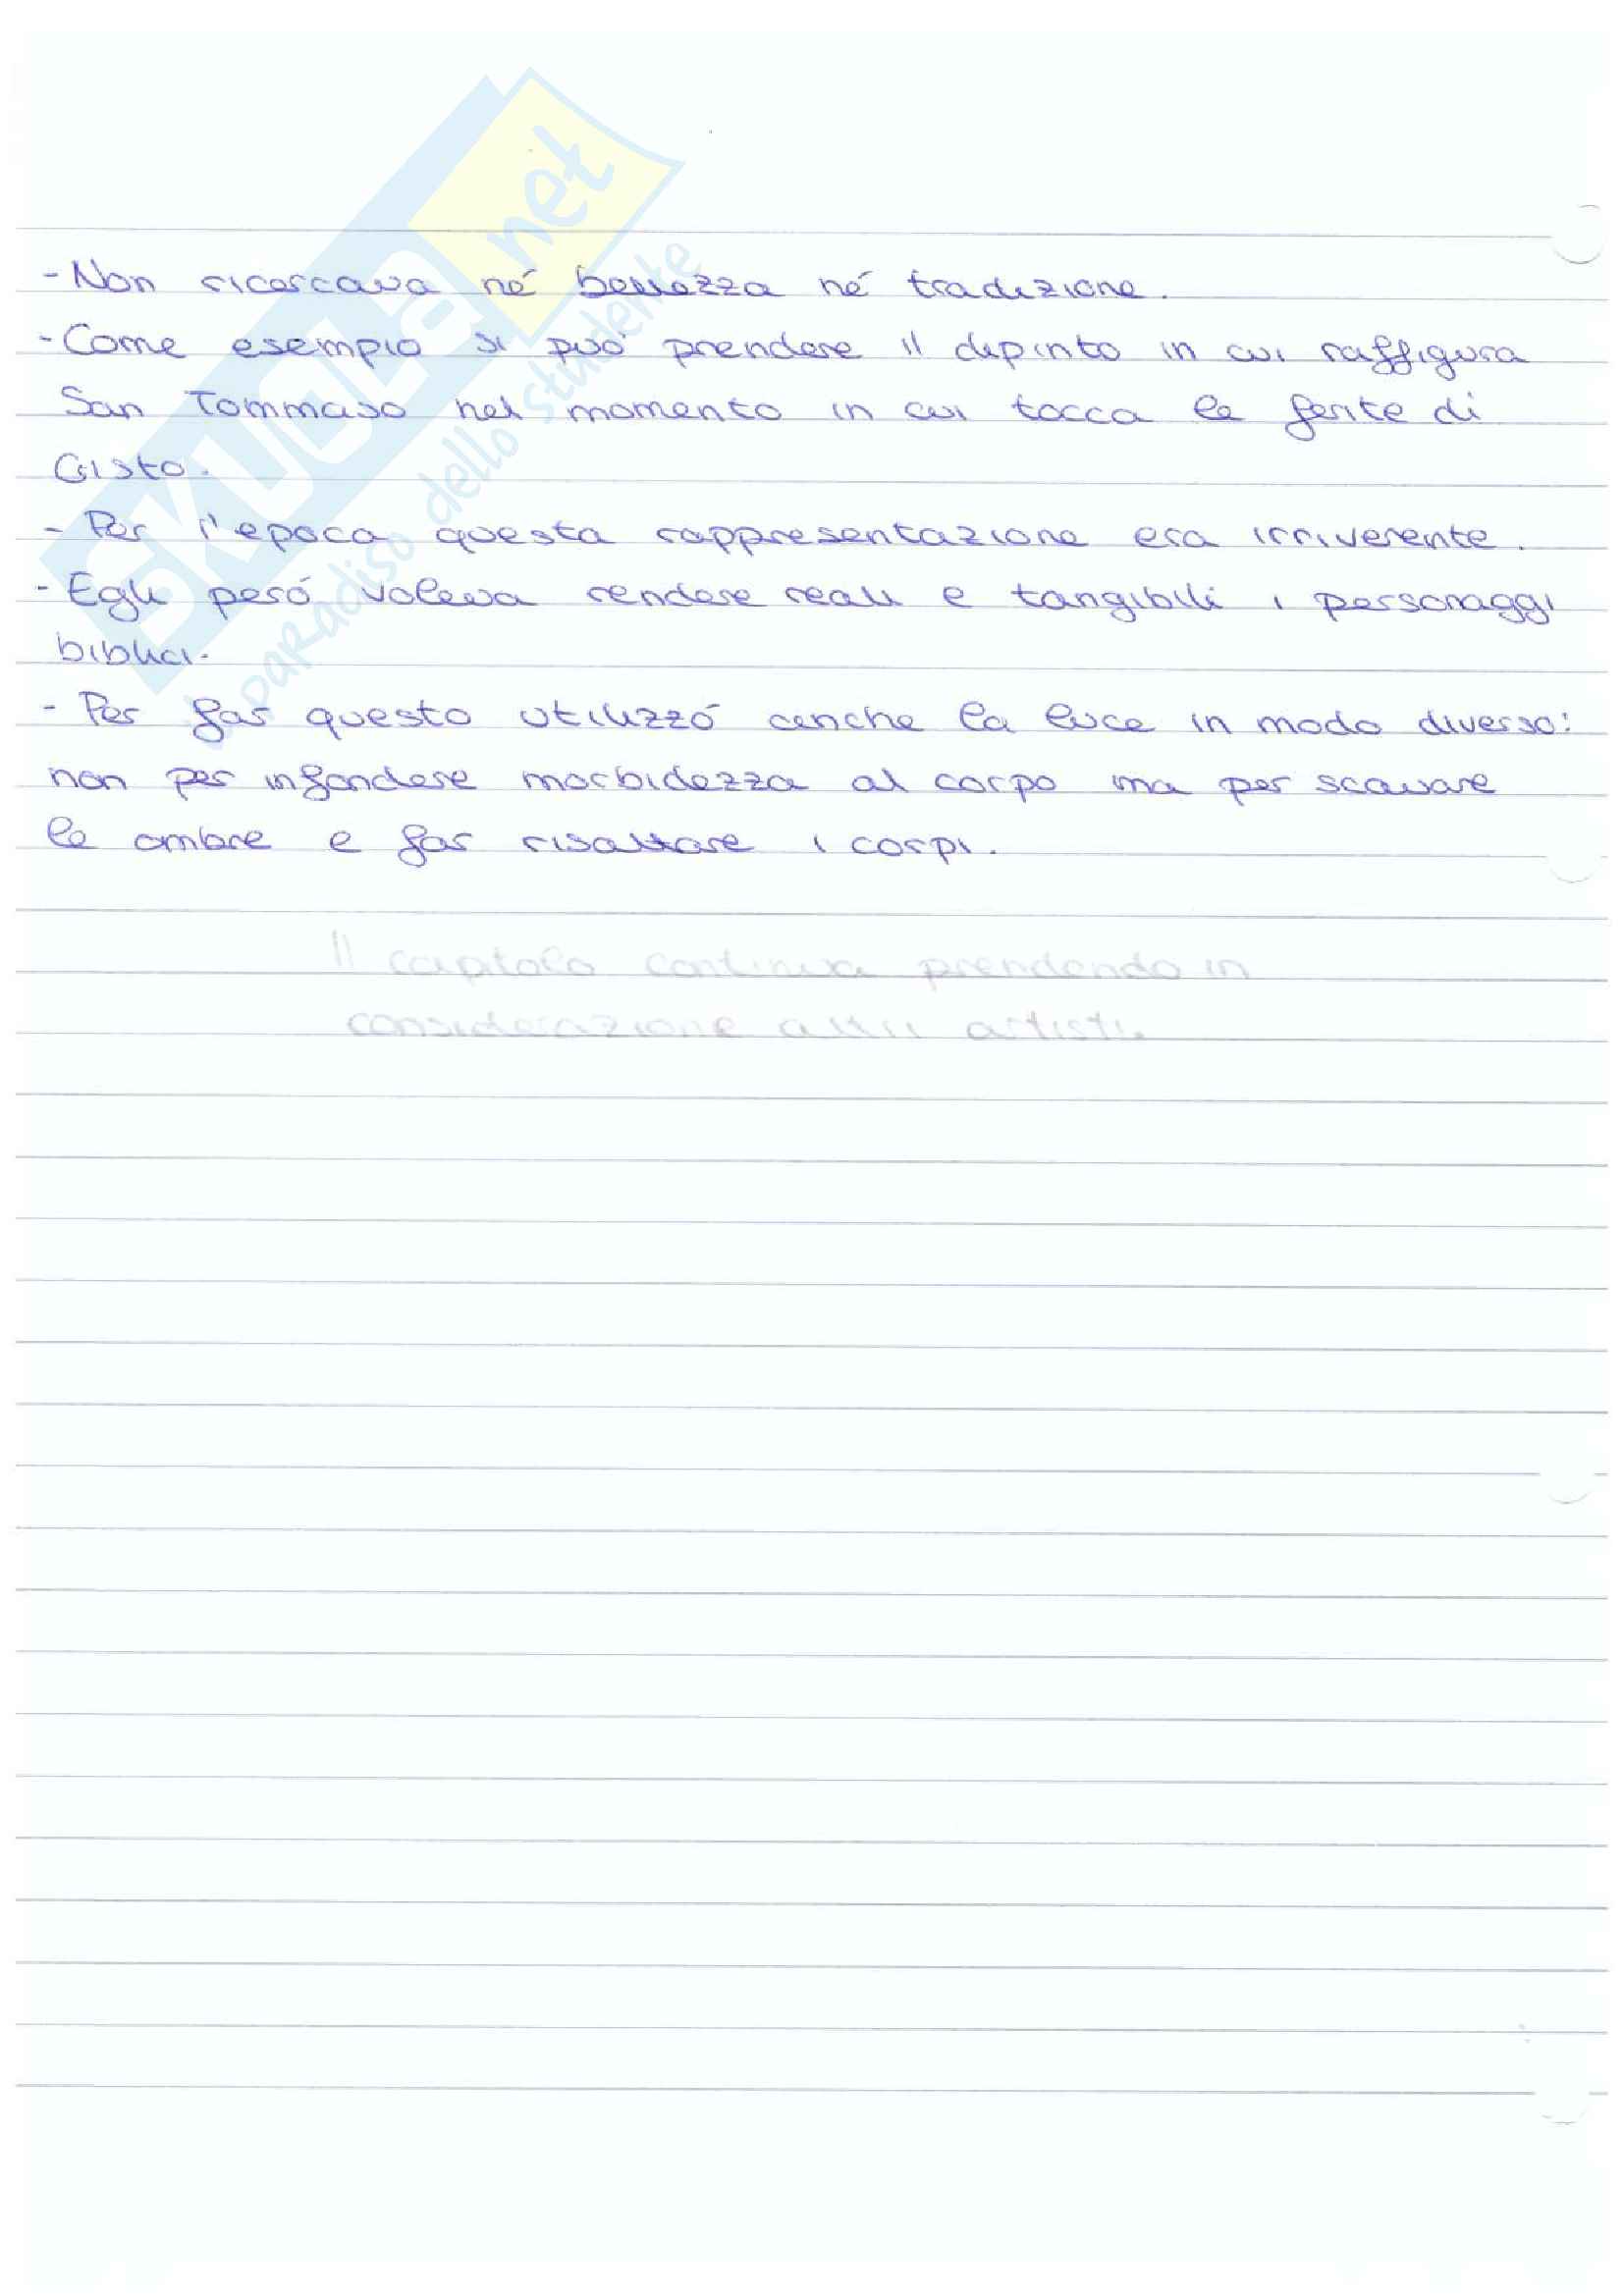 - Non ricercava né bellezza né tradizione.
- Come esempio si può prendere il dipinto in cui raffigura
San Tommaso nel momento in cui tocca le ferite di
Cristo.
- Per l'epoca questa rappresentazione era irriverente.
- Egli però voleva rendere reali e tangibili i personaggi
biblici.
- Per far questo utilizzò anche la luce in modo diverso:
non per infondere morbidezza al corpo ma per scavare
le ombre e far risaltare i corpi.
Il capitolo continua prendendo in
considerazione altri artisti.
SKUOLA.net
il paradiso dello studente